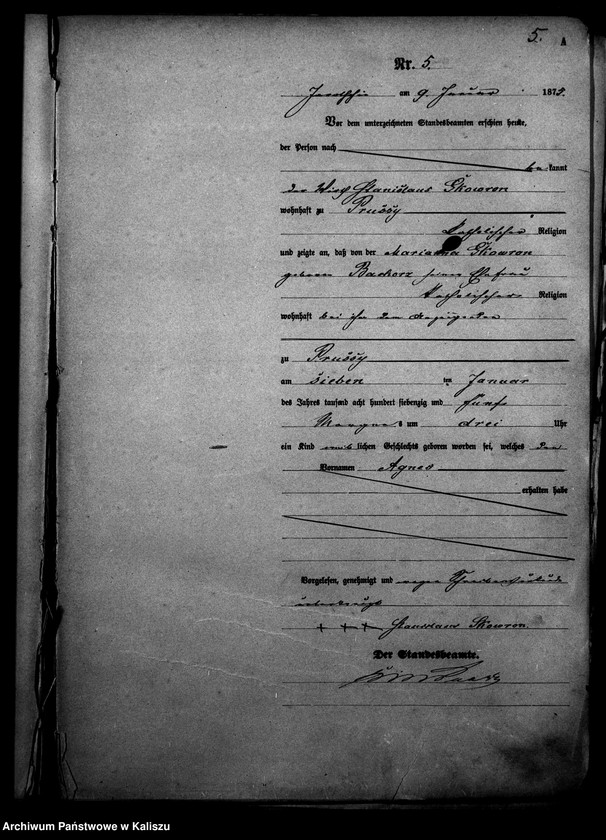 5. A
Nr. 5.
am 9. Januar 1875.
Vor dem unterzeichneten Standesbeamten erschien heute,
der Person nach
be kannt
der Wirth Stanislaus Skowron
wohnhaft zu Prussy
katholischer Religion
und zeigte an, daß von der Marianna Skowron
geborene Bachorz seiner Ehefrau
katholischer Religion
wohnhaft bei ihm dem Anzeigenden
zu Prussy
am sieben ten Januar
des Jahres tausend acht hundert siebenzig und fünf
Morgens um drei Uhr
ein Kind weiblichen Geschlechts geboren worden sei, welches den
Vornamen Agnes
erhalten habe
Vorgelesen, genehmigt und wegen
unterkreuzt
+ + + Stanislaus Skowron.
Der Standesbeamte.
Archiwum Państwowe w Kaliszu